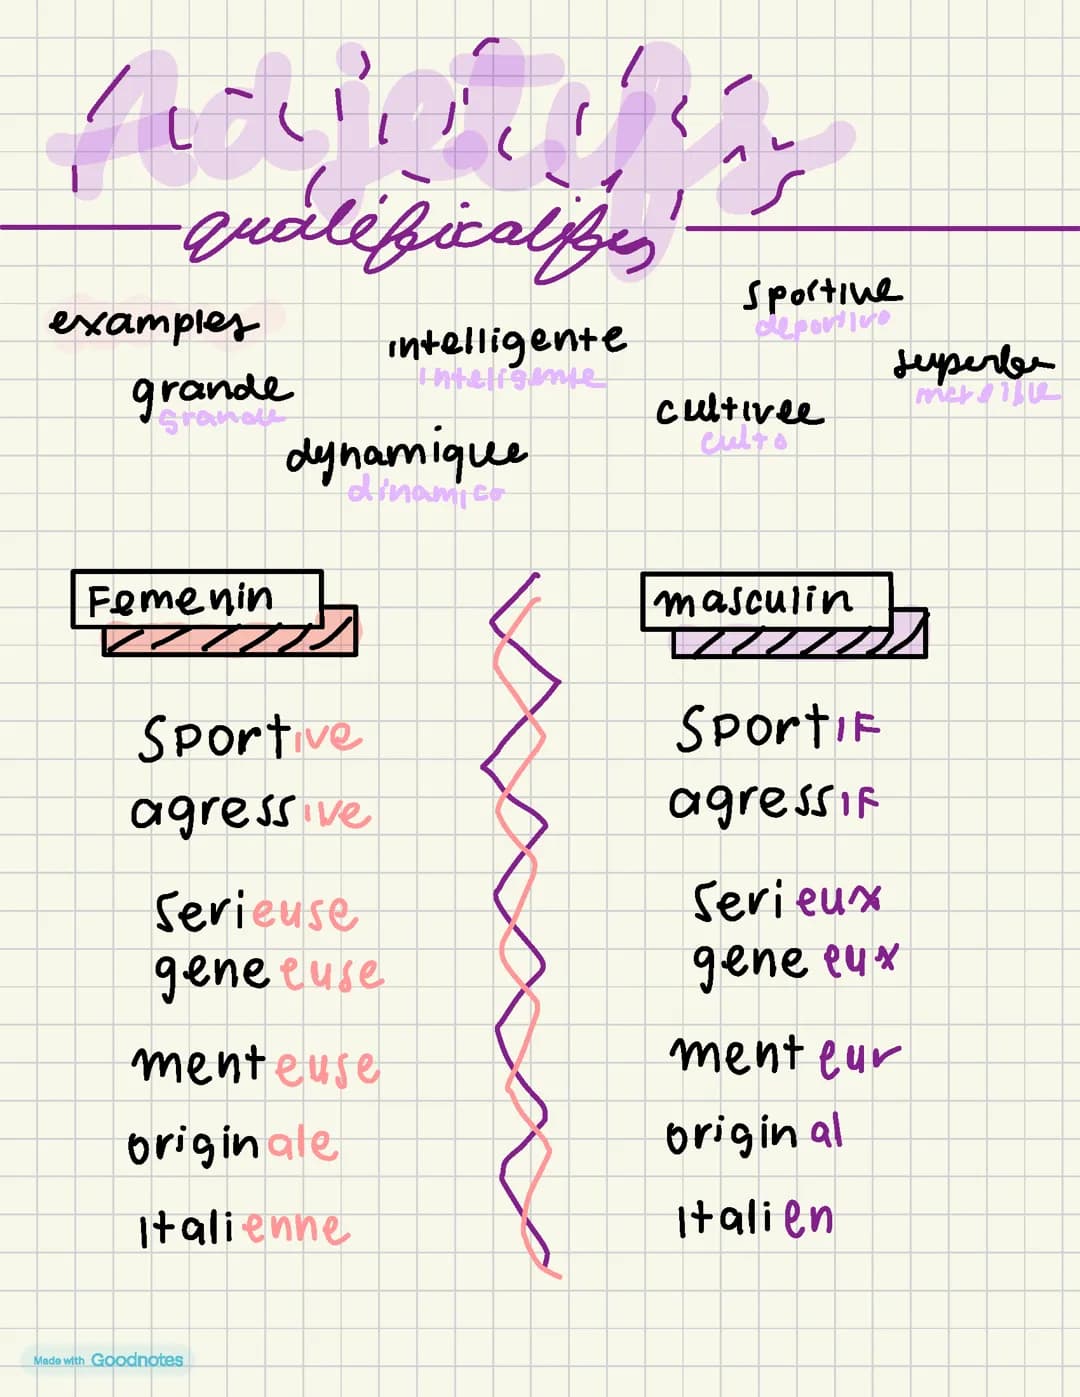 Adjetifs
qualificatifs
examples
sportive
deportivo
intelligente
inteligente
superbe
grande
grande
cultivee
culto
dynamique
dinamico
Femenin
masculin
sportive
sportif
agressive
agressif
serieuse
serieux
geneeuse
geneeux
menteuse
menteur
originale
original
Italienne
Italien
Made with Goodnotes